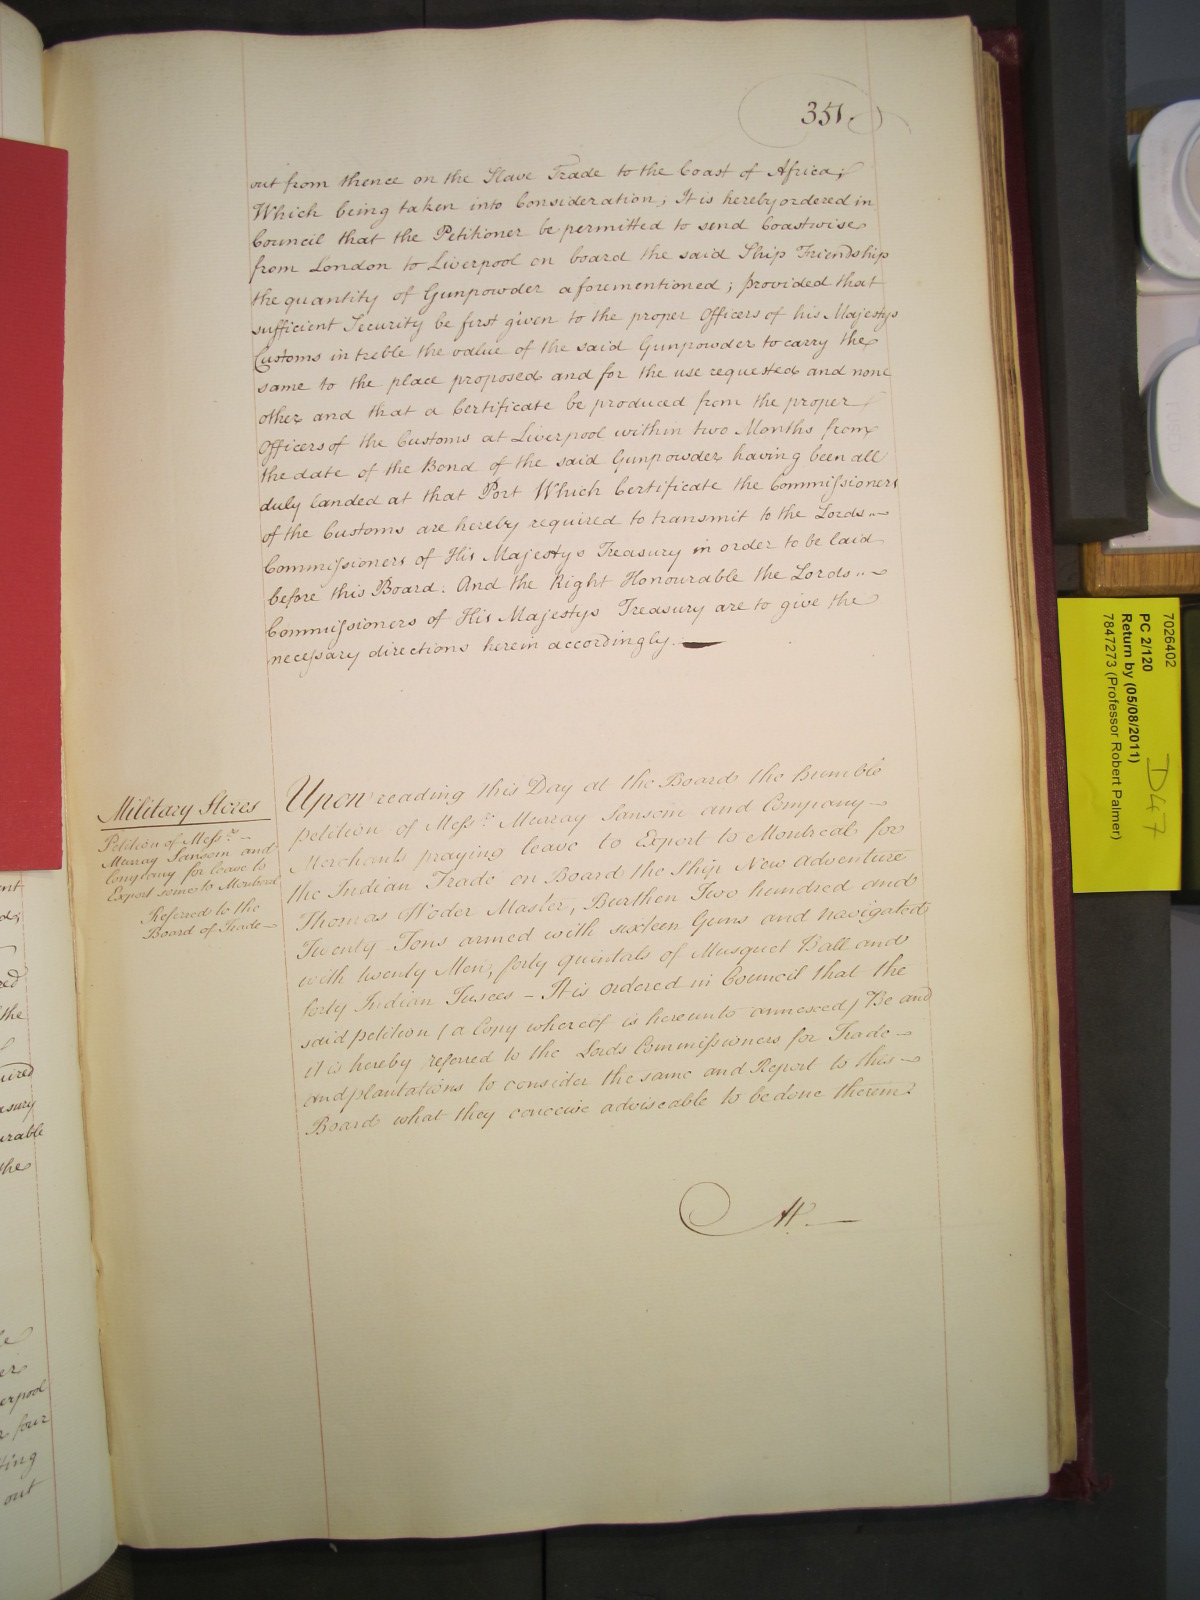 351.
out from thence on the Slave Trade to the Coast of Africa;
Which being taken into Consideration; It is hereby ordered in
Council that the Petitioner be permitted to send Coastwise
from London to Liverpool on board the said Ship Friendship
the quantity of Gunpowder aforementioned; provided that
sufficient Security be first given to the proper Officers of his Majestys
Customs in treble the value of the said Gunpowder to carry the
same to the place proposed and for the use requested and none
other and that a Certificate be produced from the proper
Officers of the Customs at Liverpool within two Months from
the date of the Bond of the said Gunpowder having been all
duly landed at that Port Which Certificate the Commissioners
of the Customs are hereby required to transmit to the Lords
Commissioners of His Majestys Treasury in order to be laid
before this Board. And the Right Honourable the Lords
Commissioners of His Majestys Treasury are to give the
necessary directions herein accordingly.
Military Stores
Petition of Messrs
Murray Sansom and
Company for leave to
Export some to Montreal
Referred to the
Board of Trade
Upon reading this Day at the Board the humble
petition of Messrs Murray Sansom and Company
Merchants praying leave to Export to Montreal for
the Indian Trade on Board the Ship New Adventure
Thomas Master, Burthen Two hundred and
Twenty Tons armed with sixteen Guns and navigated
with twenty Men, forty quintals of Musquet Ball and
forty Indian Fusees - It is ordered in Council that the
said petition (a Copy whereof is hereunto annexed) Be and
it is hereby referred to the Lords Commissioners for Trade
and plantations to consider the same and Report to this
Board what they conceive adviseable to be done therein.
7026402
PC 2/120
Return by (05/08/2011)
7847273 (Professor Robert Palmer)
D47